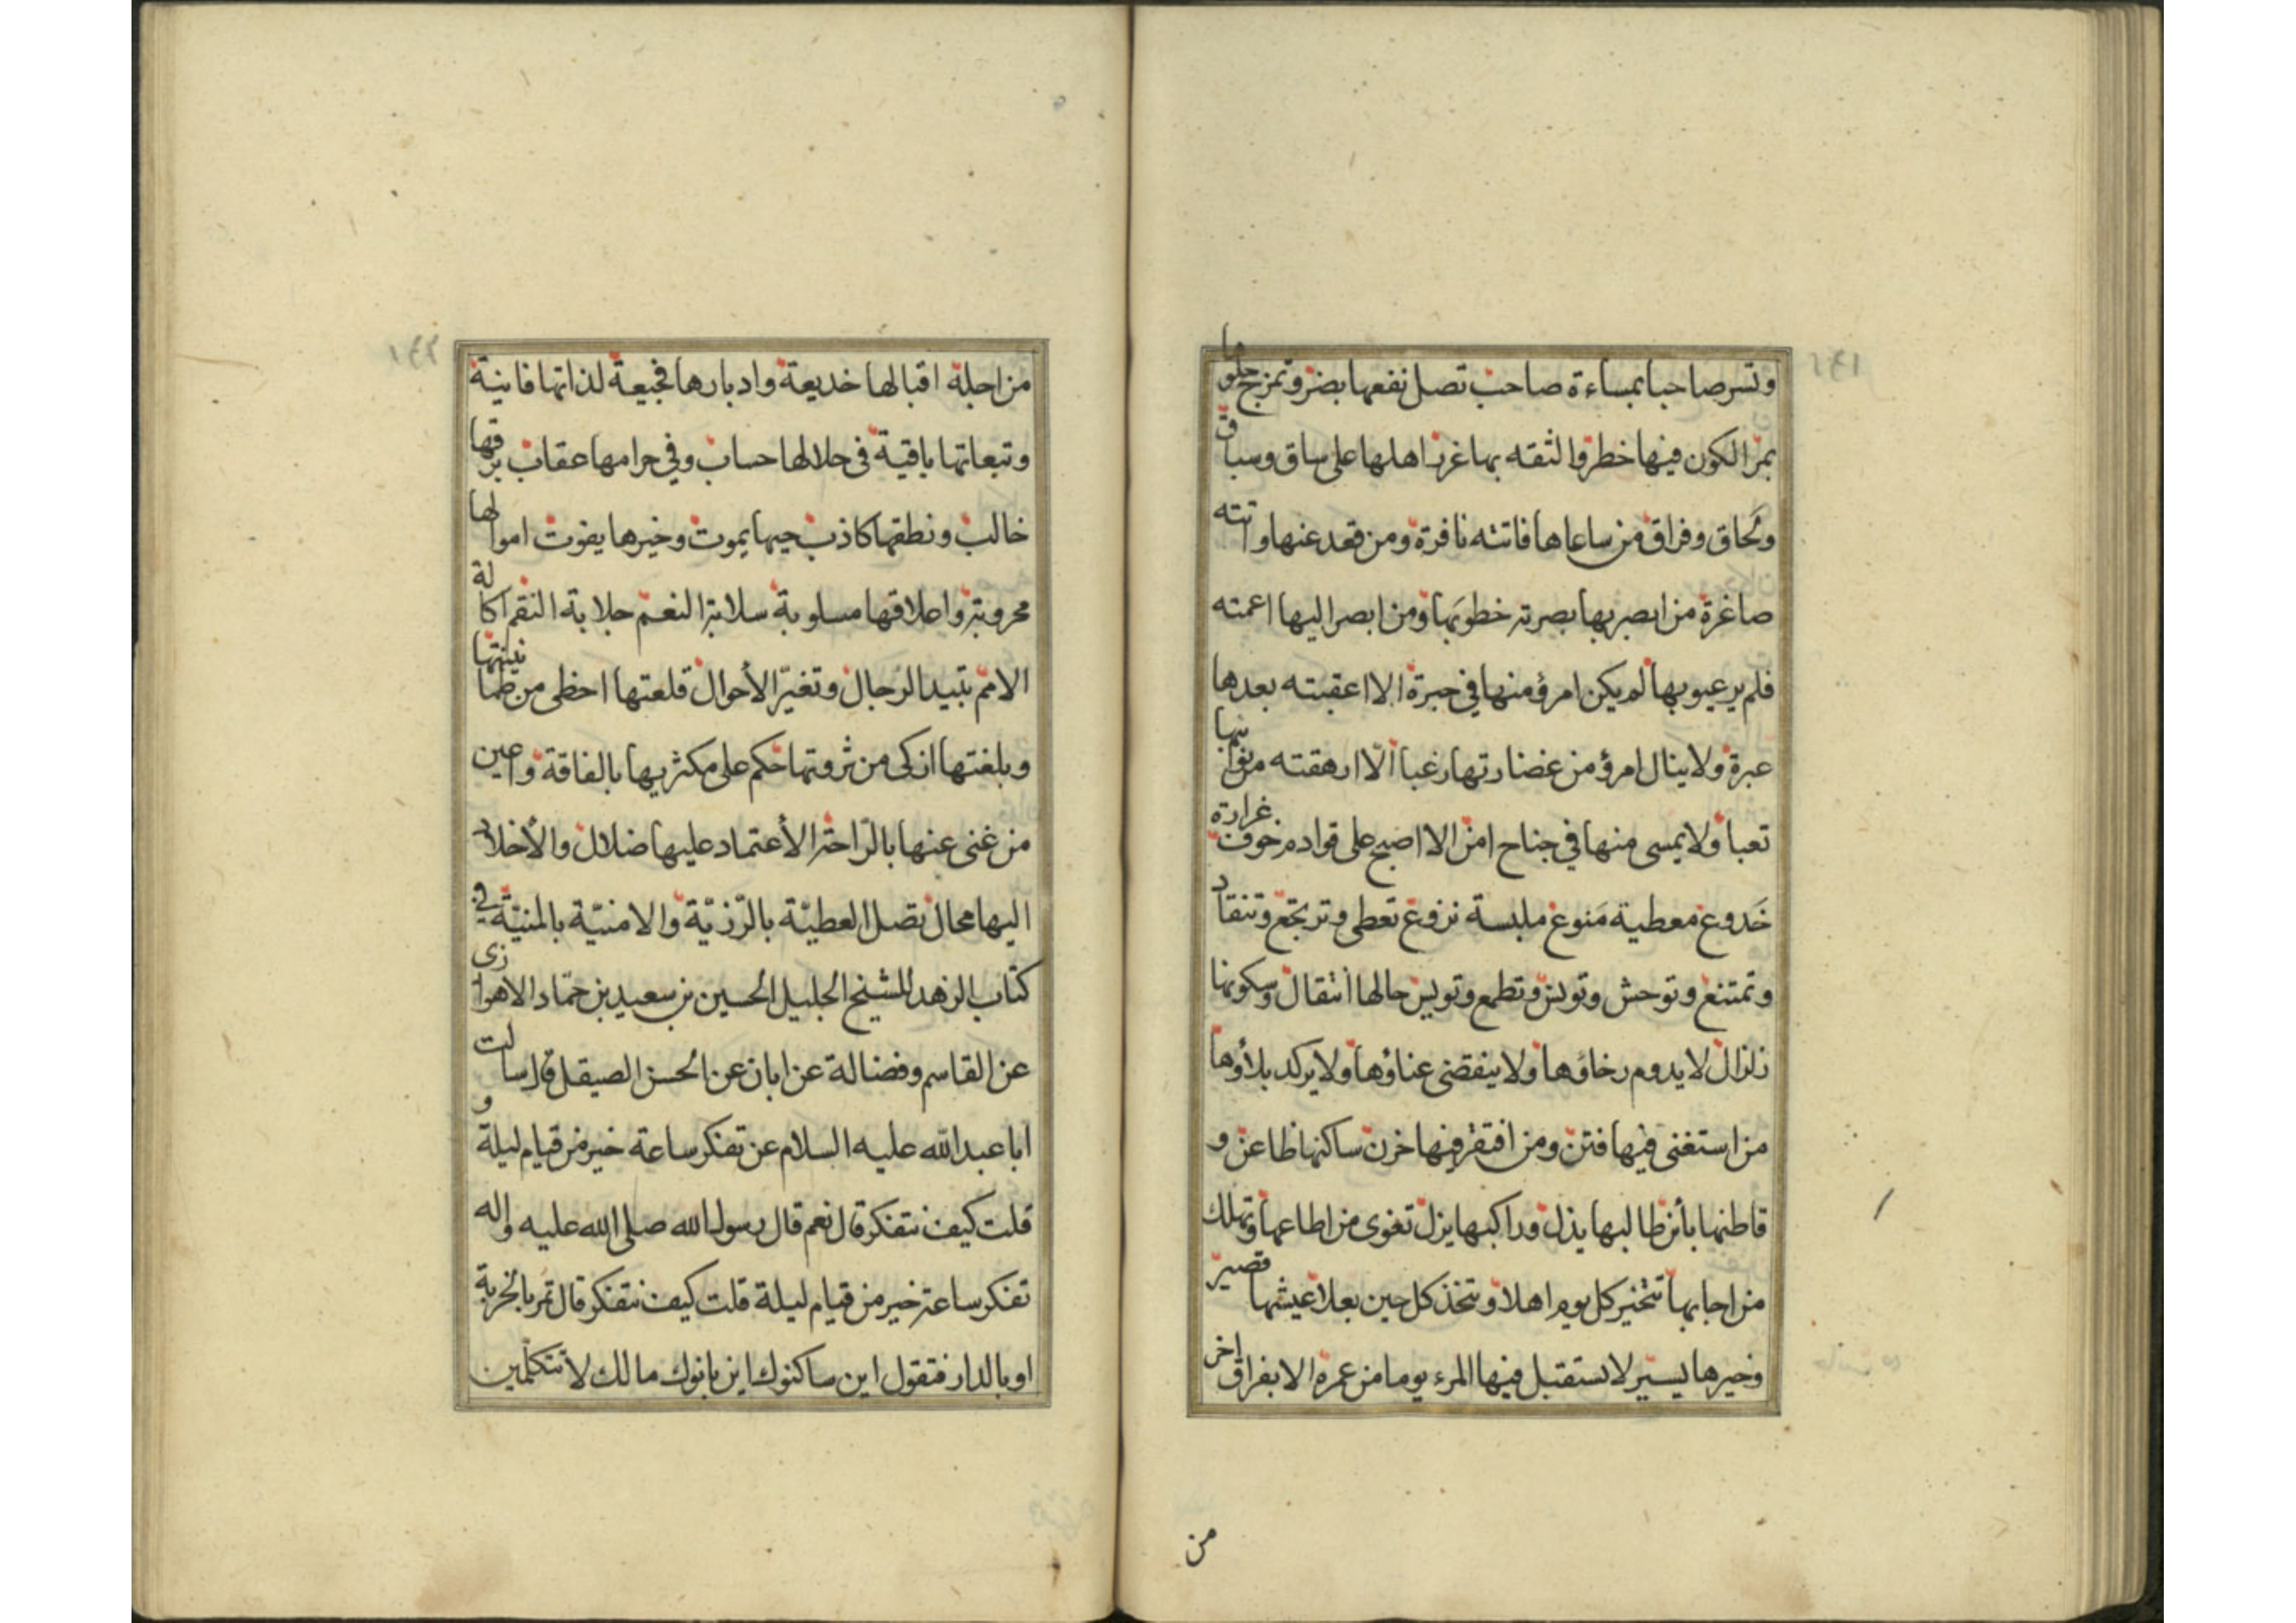 وتسر صاحبا بمساءة صاحب تصل نفعها بضر وتمزج حلوها
بمر الكون فيها خطر والثقه بها غرر اهلها على ساق وسباق
ولحاق وفراق من ساعاها فاتته نافرة ومن قعد عنها واتته
صاغرة من ابصر بها بصرته خطوبها ومن ابصر اليها اعمته
فلم ير عيوبها لم يكن امرؤ منها في حبرة الا اعقبته بعدها
عبرة ولا ينال امرؤ من غضارتها رغبا الّا ارهقته من نوائبها
تعبا ولا يمسى منها في جناح امن الا اصبح على قوادم خوف غرارة
خَدوع معطية مَنوع ملبسة نزوع تعطى وترتجع وتنقاد
وتمتنع وتوحش وتونس وتطمع وتويس حالها انتقال وسكونها
زلزال لا يدوم رخاؤها ولا ينقضى عناؤها ولا يركد بلاؤها
من استغنى فيها فتن ومن افتقر فيها حزن ساكنها ظاعن و
قاطنها بائن طالبها يذل وراكبها يزل تغوى من اطاعها وتهلك
من اجابها تتخير كل يوم اهلا وتتخذ كل حين بعلا عيشها قصير
وخيرها يسير لا يستقبل فيها المرء يوما من عمره الا بفراق اخر
من
١٤١
من اجله اقبالها خديعة وادبارها فجيعة لذاتها فانية
وتبعاتها باقية في حلالها حساب وفي حرامها عقاب برقها
خالب ونطقها كاذب حيها يموت وخيرها يفوت اموالها
محروبة واعلاقها مسلوبة سلابة النعم جلابة النقم اكالة
الامم تبيد الرجال وتغيّر الأحوال قلعتها احظى من طمانينتها
وبلغتها ازكى من ثروتها حكم على مكثر بها بالفاقة واعين
من غنى عنها بالرّاحة الأعتماد عليها ضلال والأخلاد
اليها محال تصل العطيّة بالرّزيّة والامنيّة بالمنيّة في
كتاب الزهد للشيخ الجليل الحسين بن سعيد بن حمّاد الاهوازى
عن القاسم وفضالة عن ابان عن الحسن الصيقل قال سالت
ابا عبد الله عليه السلام عن تفكر ساعة خير من قيام ليلة و
قلت كيف نتفكر قال نعم قال رسول الله صلى الله عليه واله
تفكر ساعة خير من قيام ليلة قلت كيف نتفكر قال تمر بالخربة
او بالدار فتقول اين ساكنوك اين بانوك مالك لا تتكلّمين
١٤٢